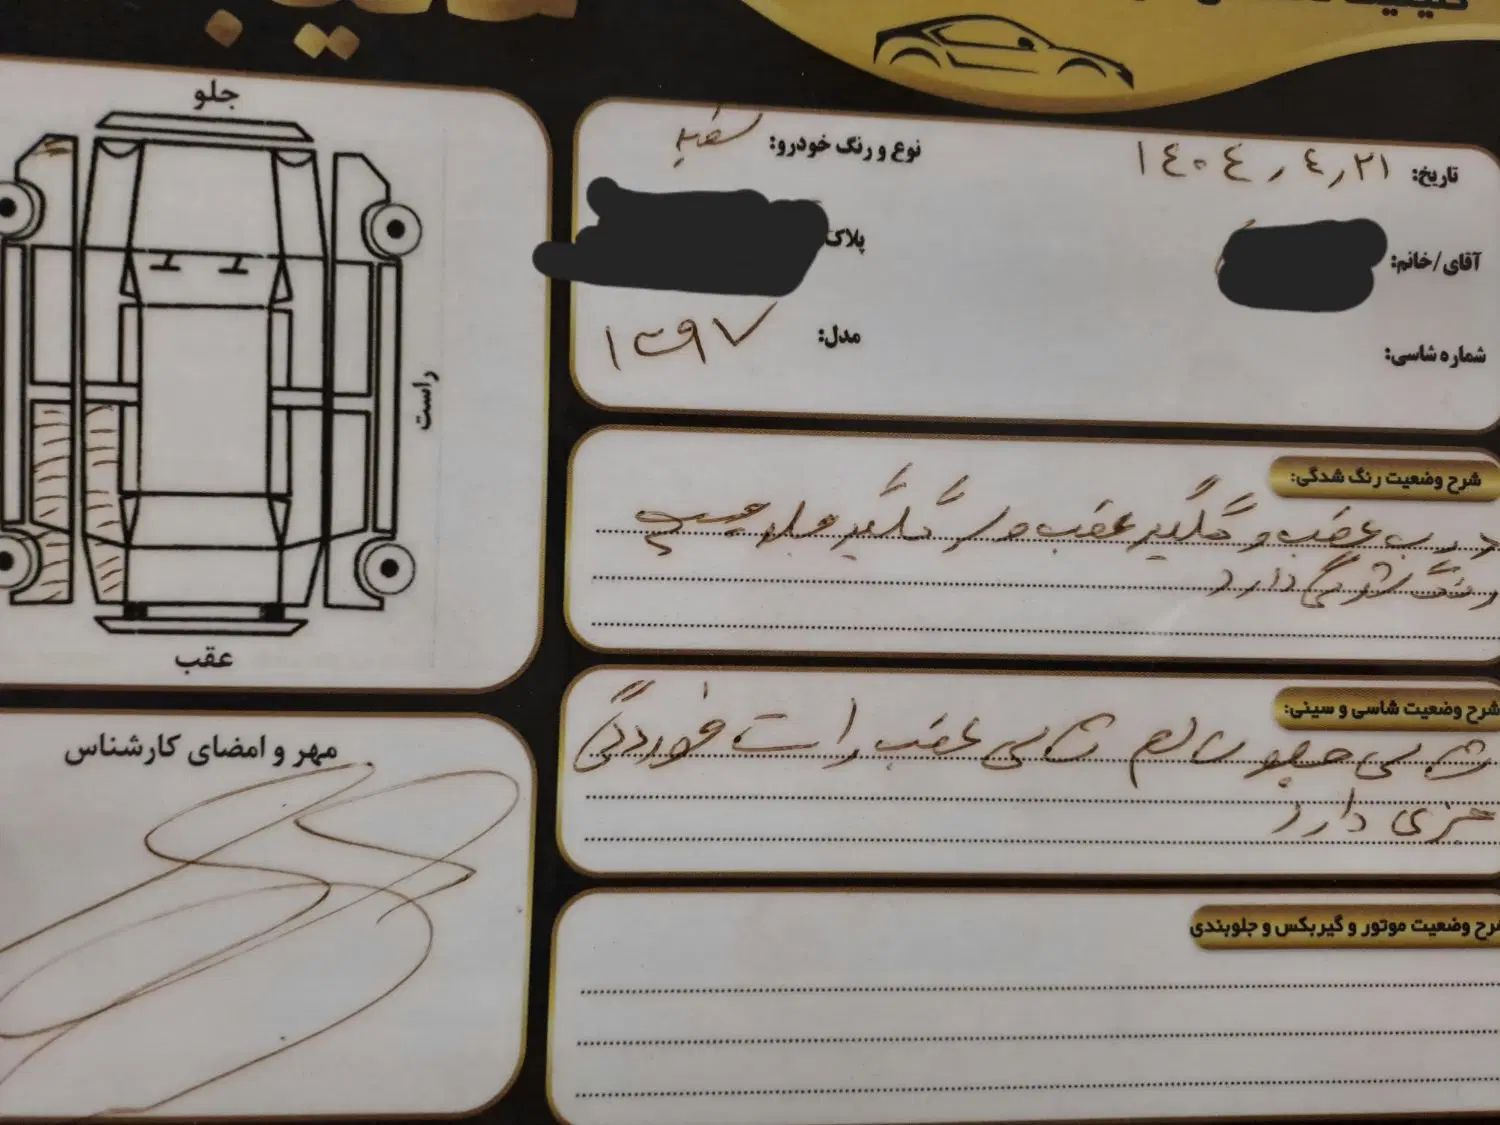 جلو
راست
عقب
مهر و امضای کارشناس
تاریخ: ۱۴۰۴٫۴٫۲۱
نوع و رنگ خودرو: سفید
آقای/خانم:
پلاک
شماره شاسی:
مدل: ۱۳۹۷
شرح وضعیت رنگ شدگی:
درب عقب و گلگیر عقب و سر گلگیر جلو چپ
رنگ شدگی دارد
شرح وضعیت شاسی و سینی:
شاسی جلو سالم شاسی عقب راست خوردگی
جزی دارد
شرح وضعیت موتور و گیربکس و جلوبندی